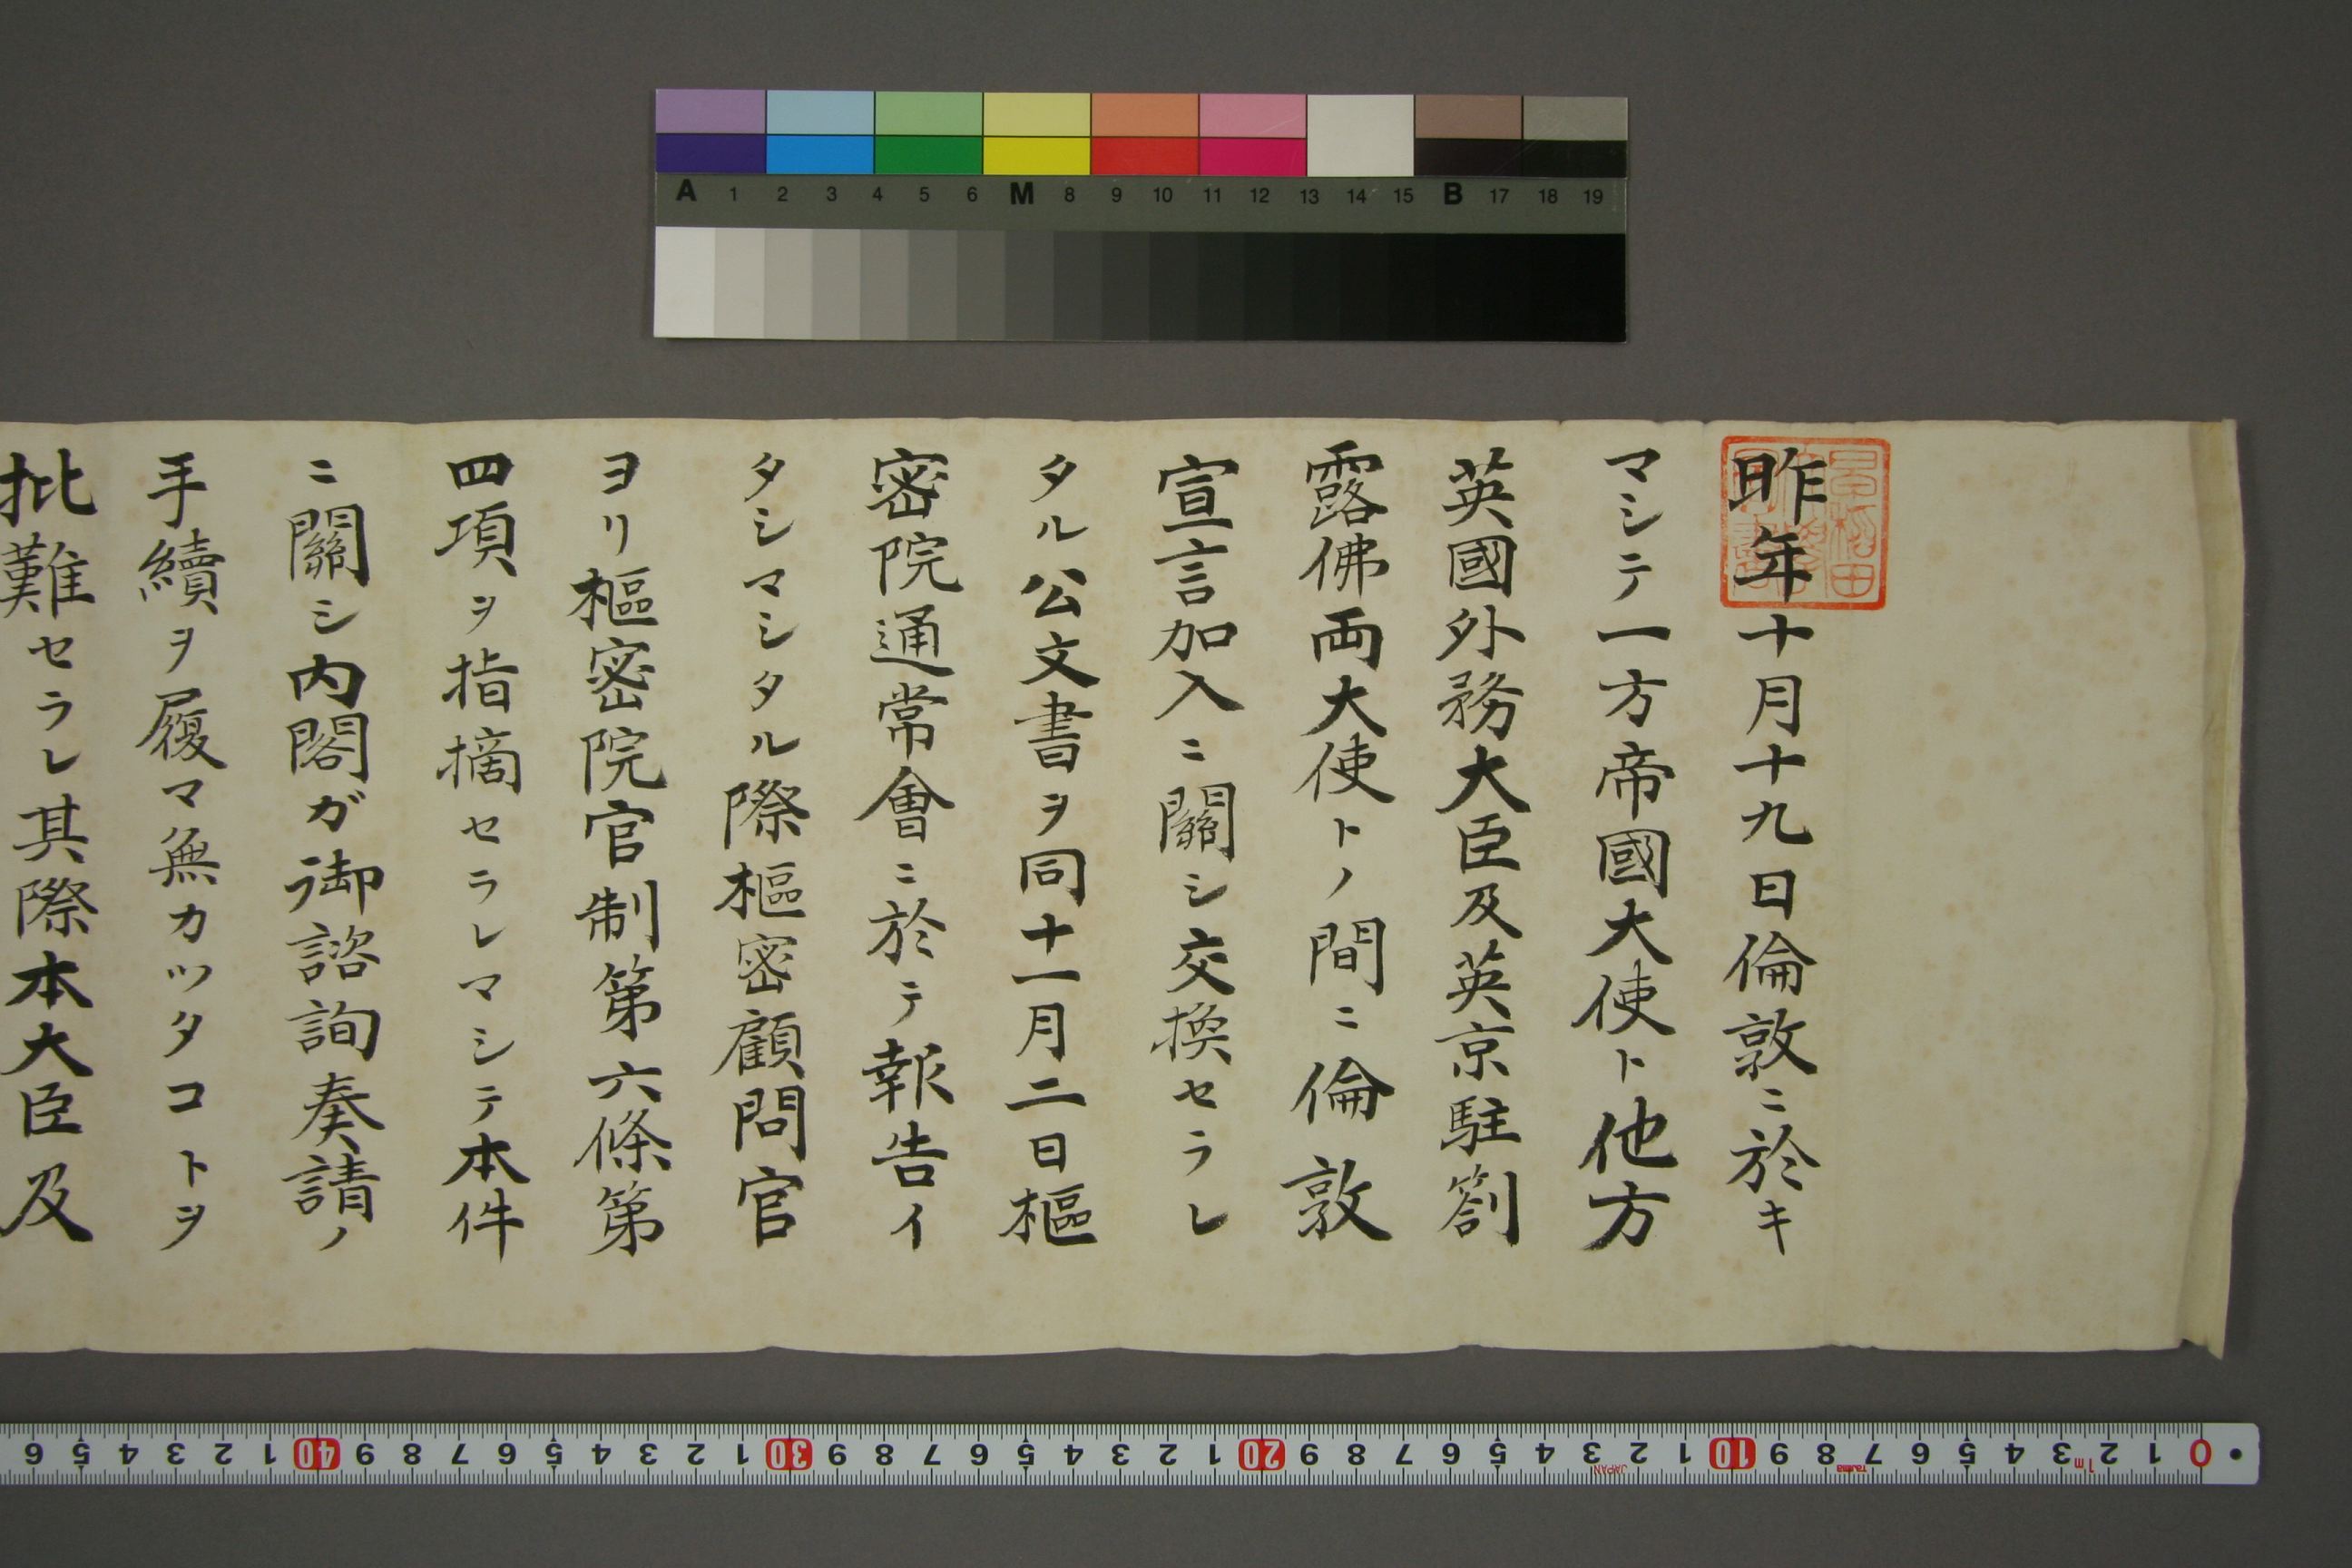 A 1 2 3 4 5 6 M 8 9 10 11 12 13 14 15 B 17 18 19
昨年十月十九日倫敦ニ於キ
マシテ一方帝國大使ト他方
英國外務大臣及英京駐劄
露佛両大使トノ間ニ倫敦
宣言加入ニ關シ交換セラレ
タル公文書ヲ同十一月二日樞
密院通常會ニ於テ報告イ
タシマシタル際樞密顧問官
ヨリ樞密院官制第六條第
四項ヲ指摘セラレマシテ本件
ニ關シ内閣ガ御諮詢奏請ノ
手續ヲ履マ無カツタコトヲ
批難セラレ其際本大臣及
6 5 4 3 2 1 40 9 8 7 6 5 4 3 2 1 30 9 8 7 6 5 4 3 2 1 20 9 8 7 6 5 4 3 2 1 10 9 8 7 6 5 4 3 2 1 0
JAPAN
Tajima
1m